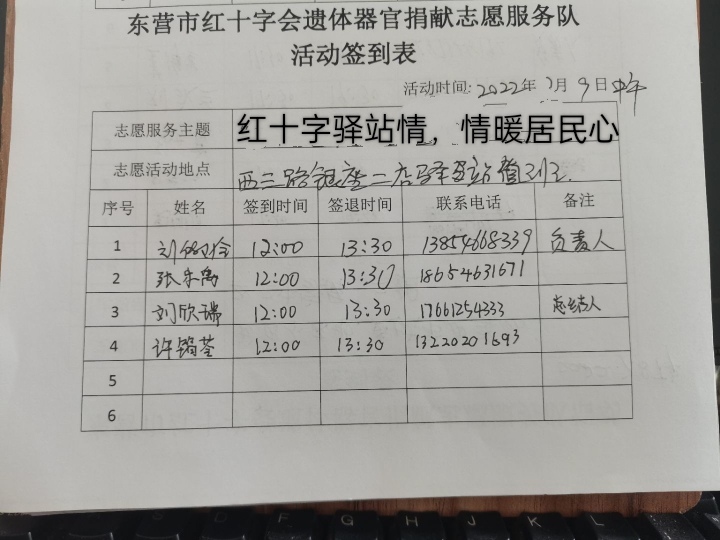 东营市红十字会遗体器官捐献志愿服务队
活动签到表
活动时间: 2022年7月9日中午
志愿服务主题 红十字驿站情，情暖居民心
志愿活动地点 西三路银座二店驿站值班
序号 姓名 签到时间 签退时间 联系电话 备注
1 12:00 13:30 13854668339 负责人
2 张乐禹 12:00 13:30 18654631671
3 刘欣瑞 12:00 13:30 17661254333 总结人
4 12:00 13:30 13220201693
5
6
F G H J K L